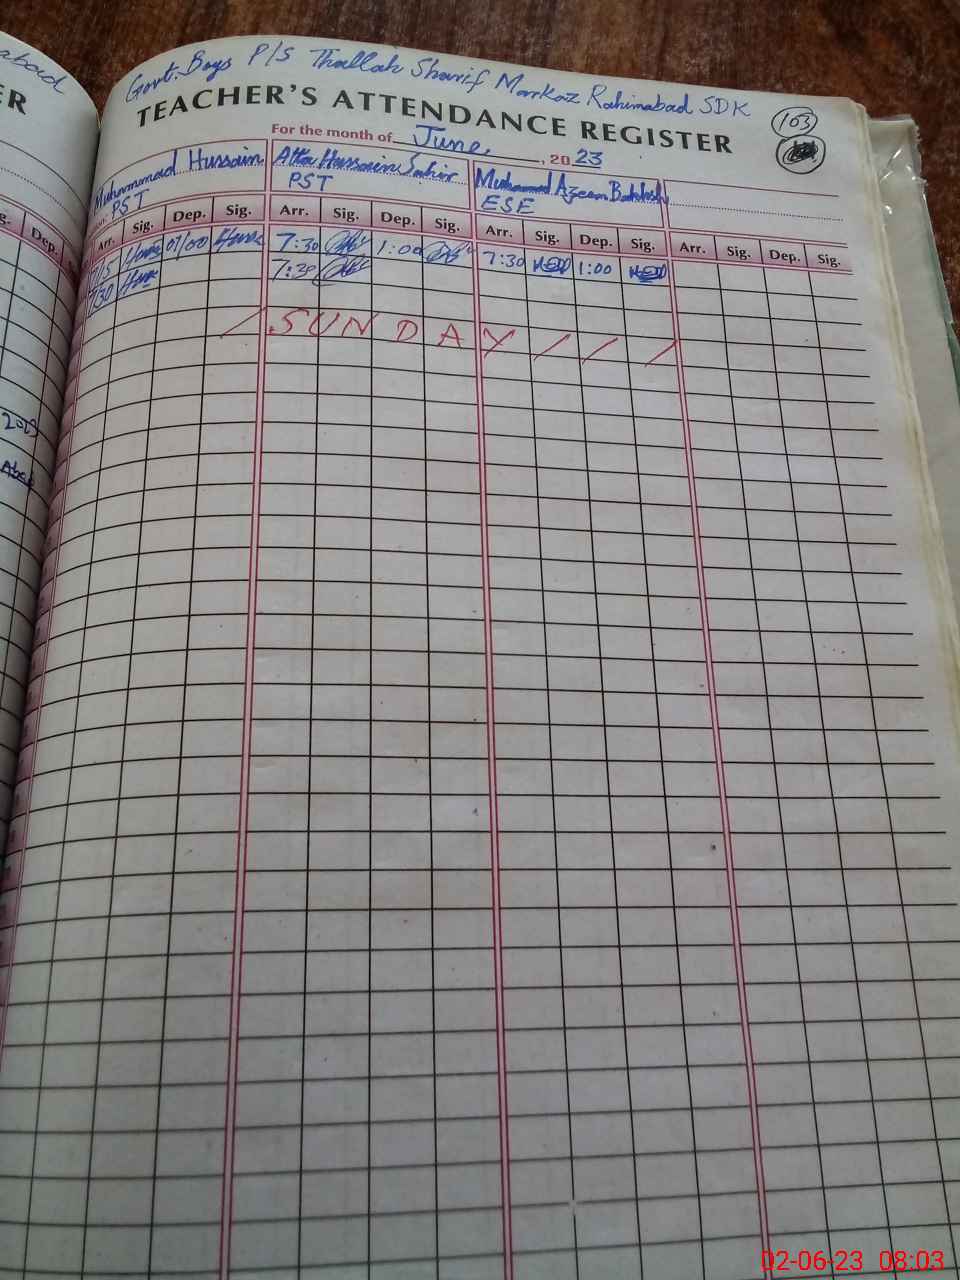 Govt. Boys P/S Thallah Sharif Markaz Rahimabad SDK
abad
ER
TEACHER'S ATTENDANCE REGISTER
103
For the month of June, 2023
Muhammad Hussain
PST
Atta Hussain Sabir
PST
Muhammad Azeem Bakhsh
ESE
g. Dep.
Arr. Sig. Dep. Sig. Arr. Sig. Dep. Sig. Arr. Sig. Dep. Sig. Arr. Sig. Dep. Sig.
7/5 01/00 7:30 1:00 7:30 1:00
7/30 7:30
/ S U N D A Y / / /
02-06-23 08:03